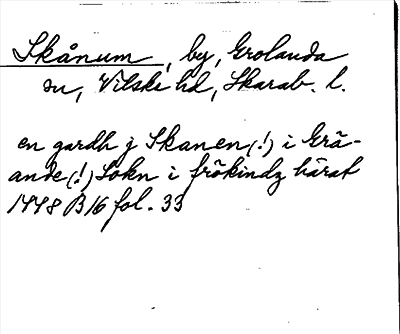 Skånum, by, Grolanda
sn, Vilske hd, Skarab. l.
en gardh j Skanen(!) i Grä-
ande(!) Sokn i frökindz härat
1448 B 16 fol. 33